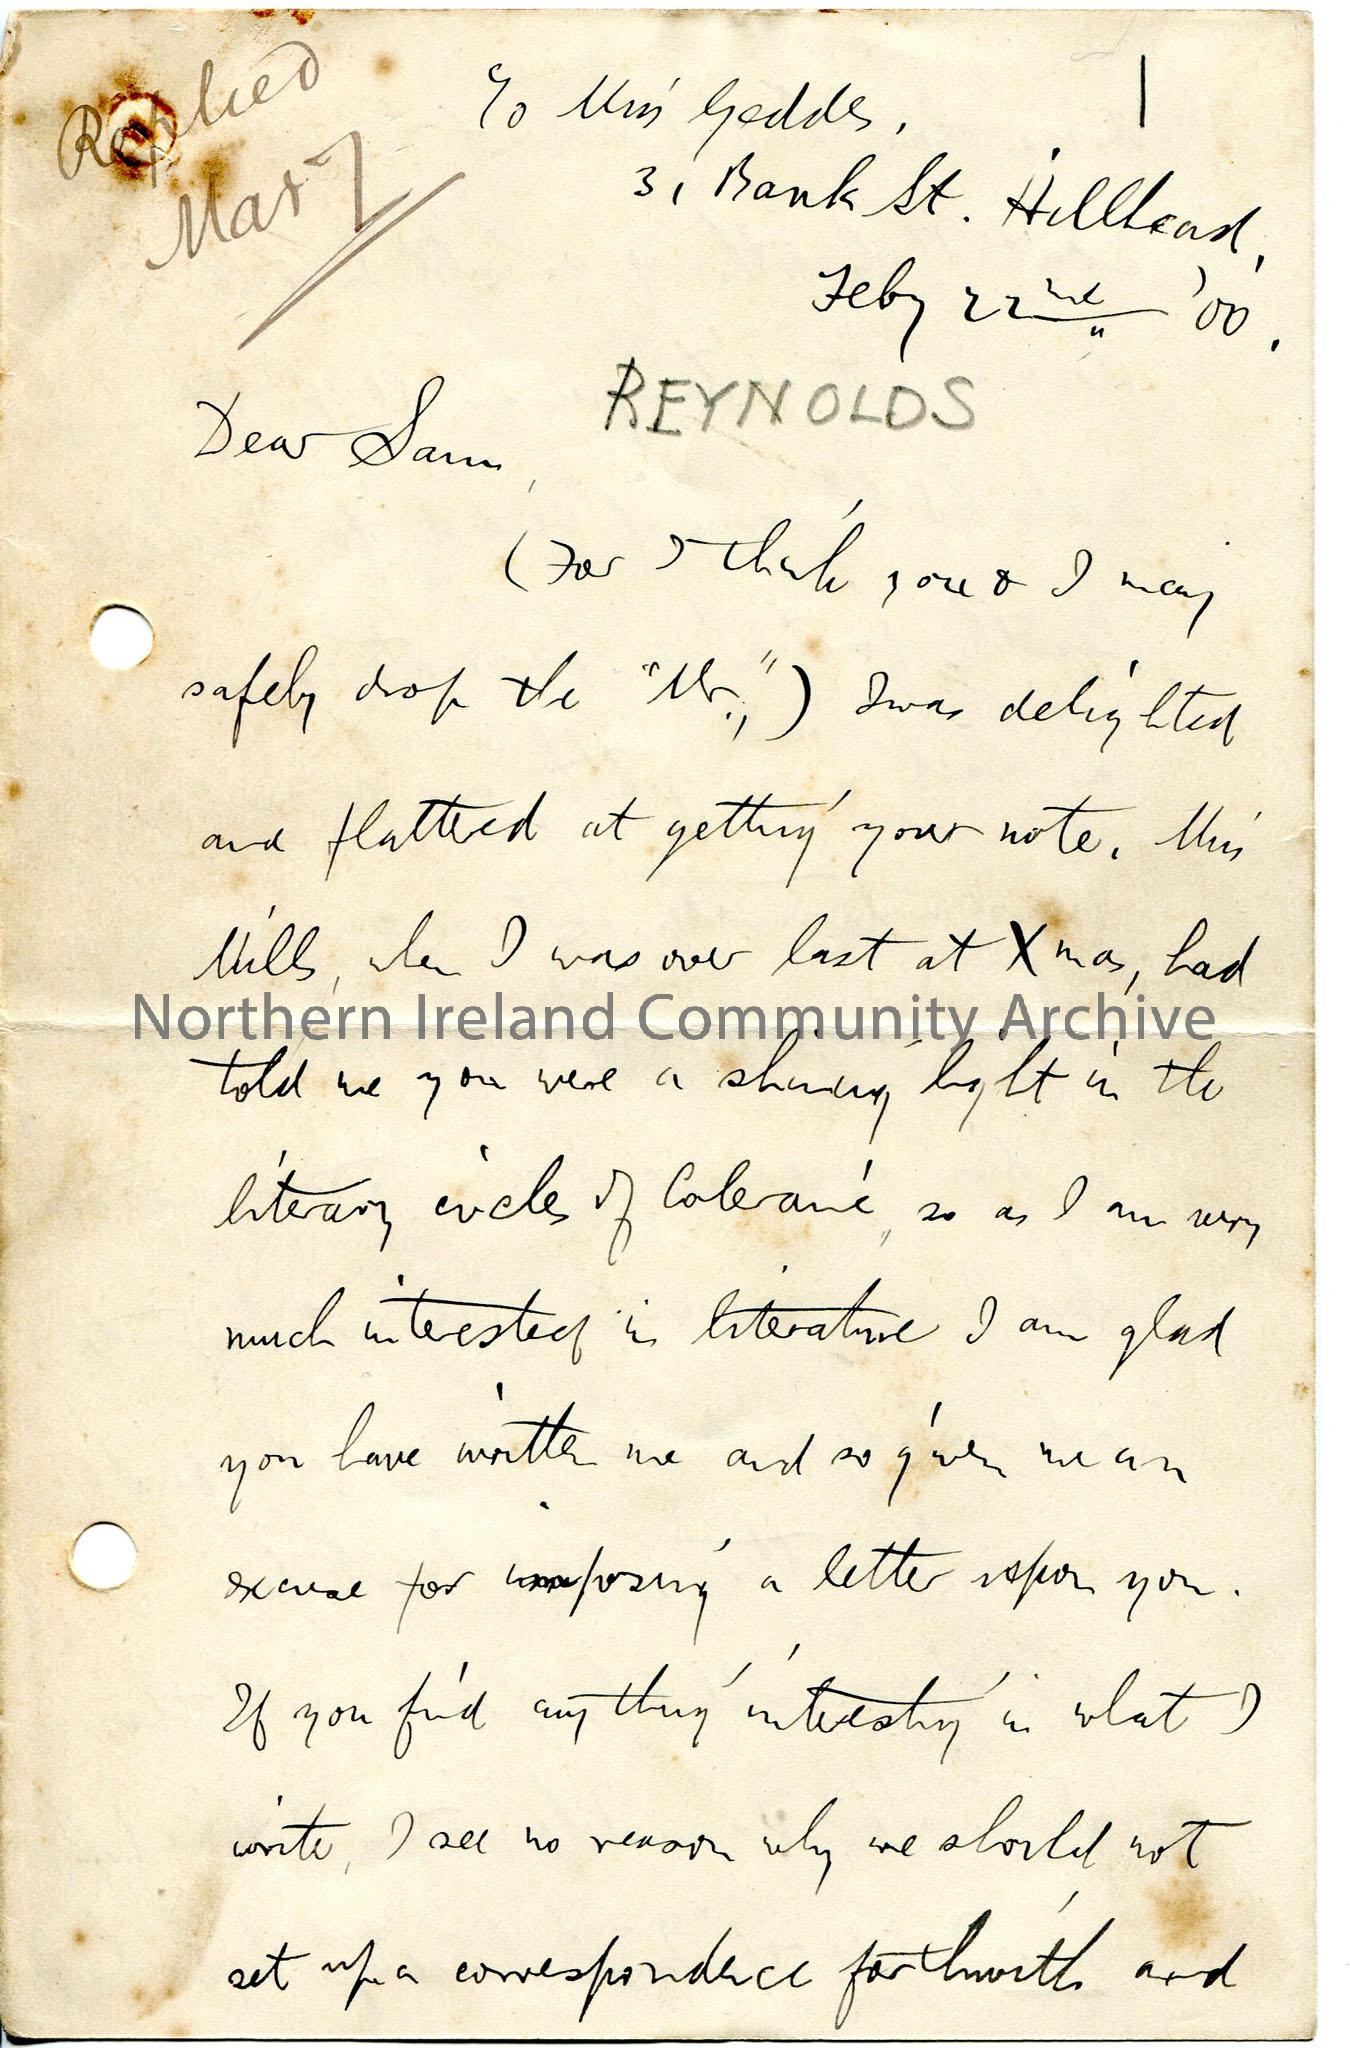 Replied
Mar 7
1
To Miss Geddes,
31 Bank St. Hillhead,
Feby 22nd '00.
REYNOLDS
Dear Sam,
(For I think you & I may
safely drop the "Mr.,") I was delighted
and flattered at getting your note. Miss
Mills, when I was over last at Xmas, had
Northern Ireland Community Archive
told me you were a shining light in the
literary circles of Coleraine, so as I am very
much interested in literature I am glad
you have written me and so given me an
excuse for imposing a letter upon you.
If you find anything interesting in what I
write, I see no reason why we should not
set up a correspondence forthwith and